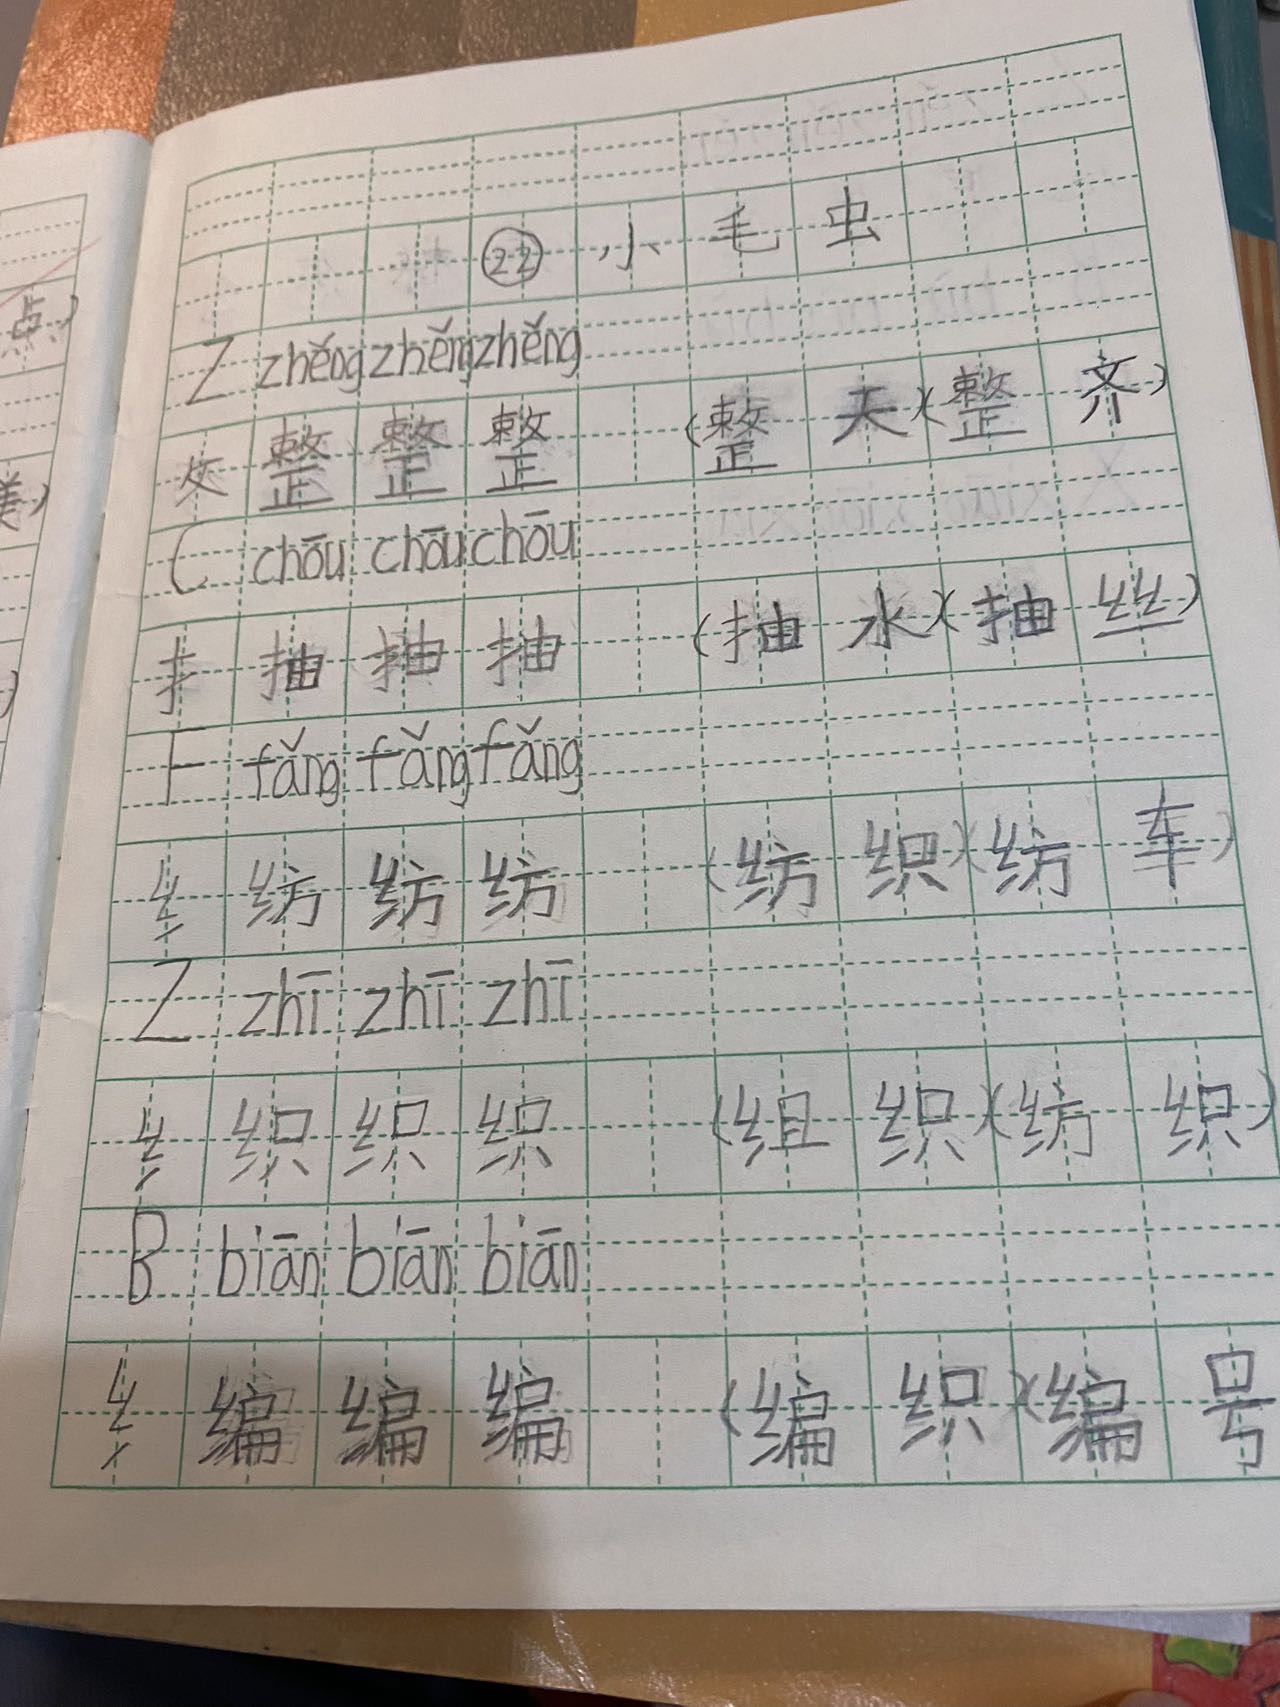 ㉒ 小毛虫
Z zhěng zhěng zhěng
攵 整 整 整 (整天)(整齐)
C chōu chōu chōu
扌 抽 抽 抽 (抽水)(抽丝)
F fǎng fǎng fǎng
纟 纺 纺 纺 (纺织)(纺车)
Z zhī zhī zhī
纟 织 织 织 (组织)(纺织)
B biān biān biān
纟 编 编 编 (编织)(编号
点)
美)